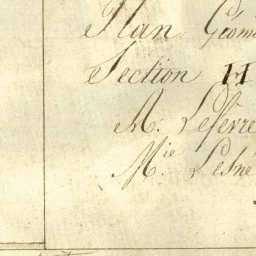 Plan Géom
Section H
M. Lefevre
Mie Lesne